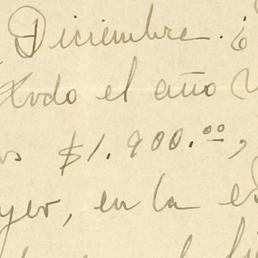 Diciembre. ¿
todo el año
os $1.900.00,
yer, en la es